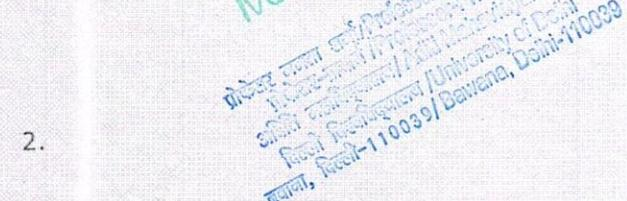 प्रोफेसर ममता शर्मा/Professor
प्रोफेसर-प्रभारी /Professor
अदिति महाविद्यालय/ Aditi Mahavidyalaya
दिल्ली विश्वविद्यालय /University of Delhi
बवाना, दिल्ली-110039/ Bawana, Delhi-110039
2.